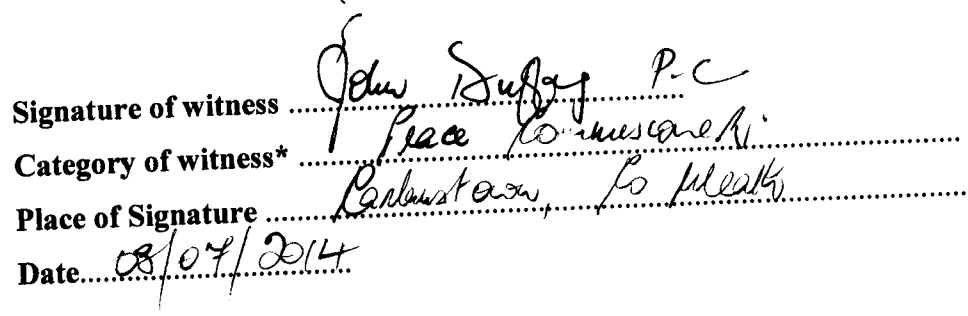 Signature of witness John Duffy P.C
Category of witness* Peace Commissioner
Place of Signature Co Meath
Date 08/07/2014